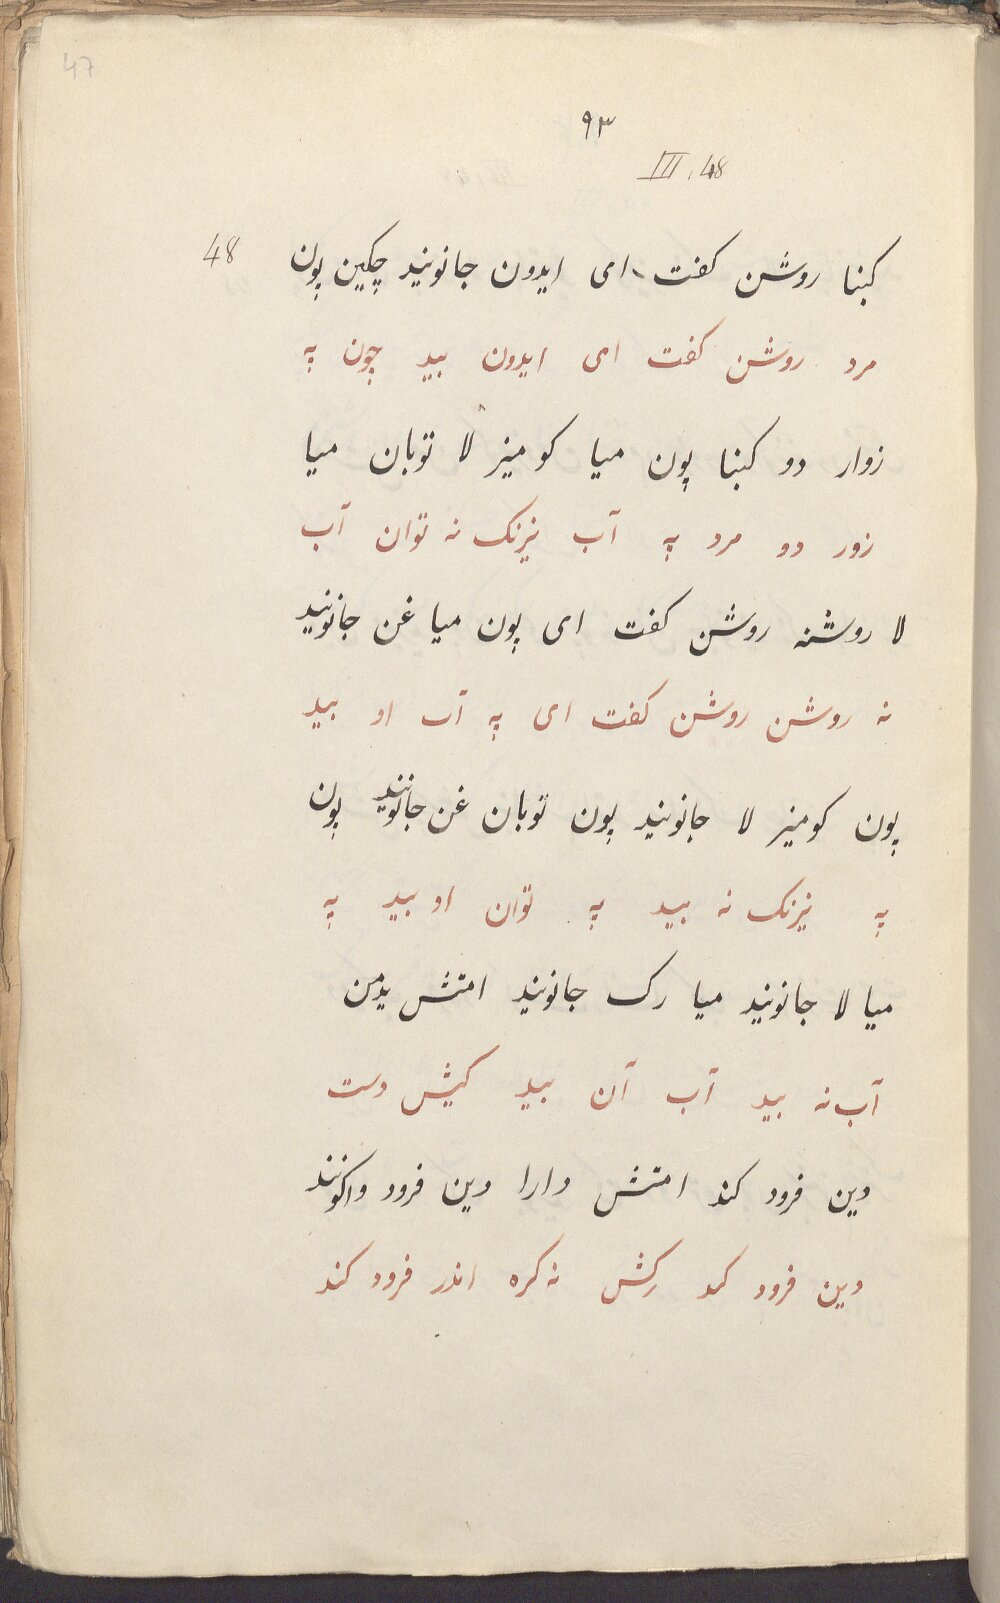 47
۹۳
III, 48
48 کبنا روشن کفت ای ایدون جانونید چکین پون
مرد روشن کفت ای ایدون بید چون په
زوار دو کبنا پون میا کومیز لا توبان میا
زور دو مرد په آب نیرنک نه توان آب
لا روشنه روشن کفت ای پون میا غن جانونید
نه روشن روشن کفت ای په آب او بید
پون کومیز لا جانونید پون توبان غن جانونید پون
په نیرنک نه بید په توان او بید په
میا لا جانونید میا رک جانونید امتش یدمن
آب نه بید آب آن بید کیش دست
دین فرود کند امتش دارا دین فرود واکونند
دین فرود کند رکش نه کره اندر فرود کند